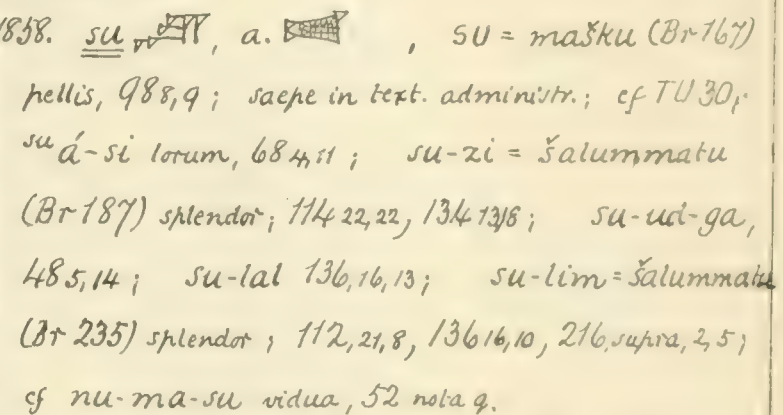 1858. su 𒋢, a. , SU = mašku (Br 167)
pellis, 98 8,9 ; saepe in text. administr. ; cf TU 30,
su á-si lorum, 68 4,11 ; su-zi = šalummatu
(Br 187) splendor ; 114 22,22, 134 13,18 ; su-ud-ga,
48 5,14 ; su-lal 136,16,13 ; su-lim = šalummatu
(Br 235) splendor ; 112,21,8, 136 16,10, 216, supra, 2,5 ;
cf nu-ma-su vidua, 52 nota q.